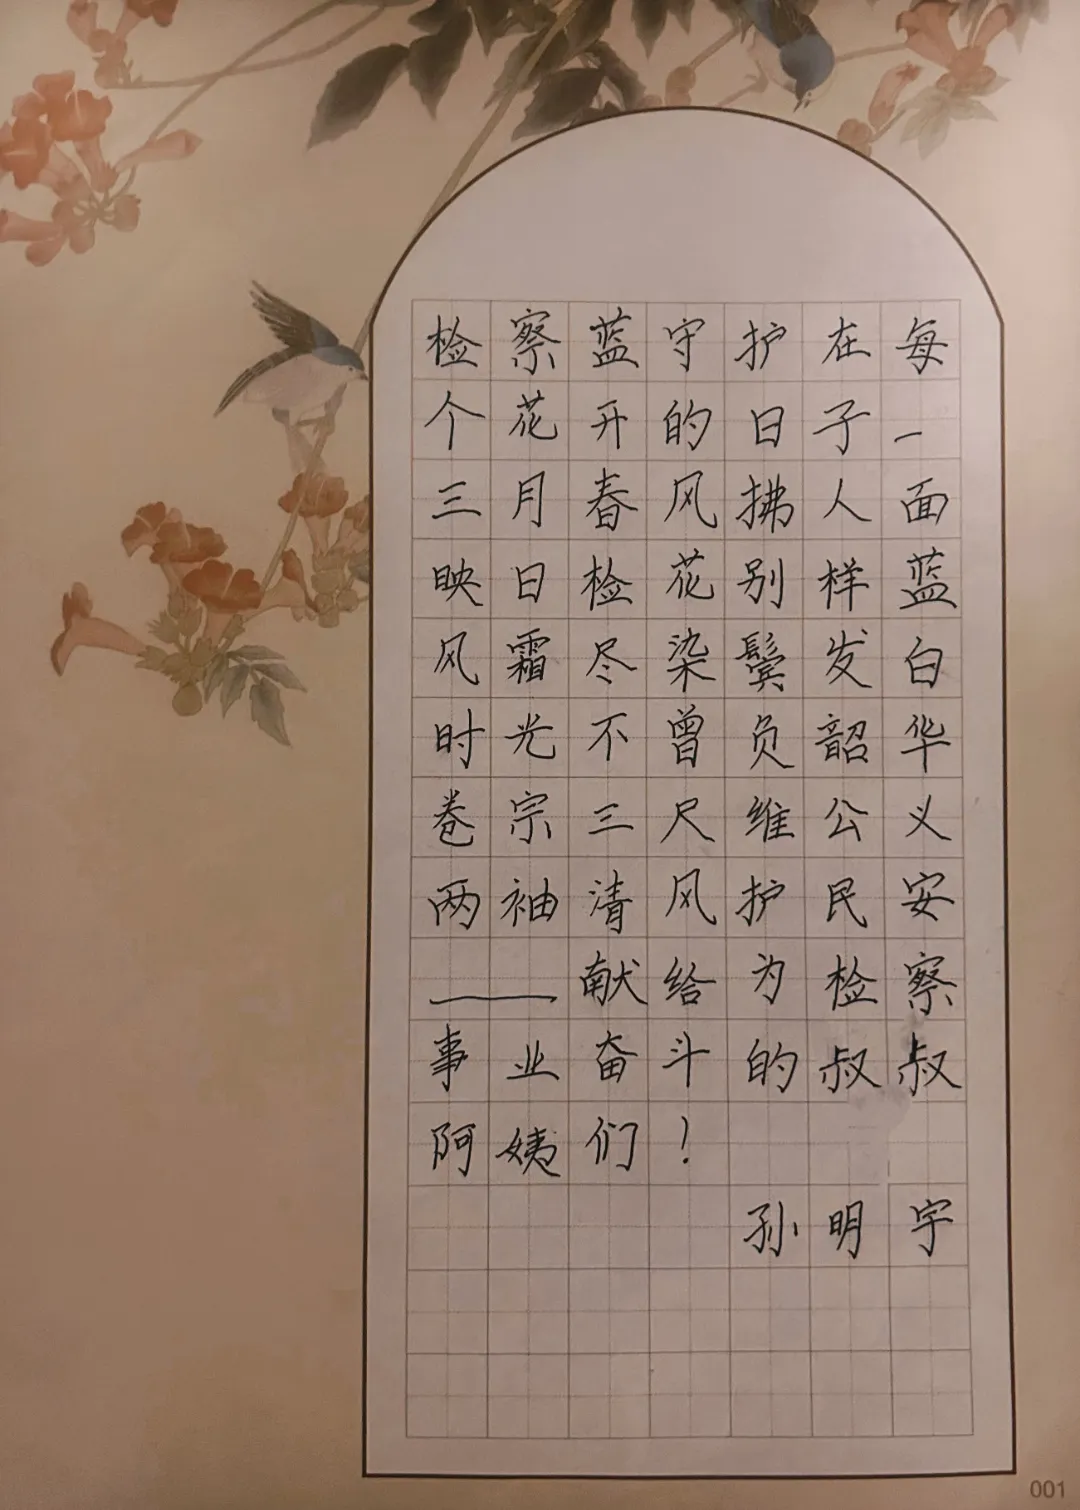 检察蓝守护在每
个花开的日子一
三月春风拂人面
映日检花别样蓝
风霜尽染鬓发白
时光不曾负韶华
卷宗三尺维公义
两袖清风护民安
——献给为检察
事业奋斗的叔叔
阿姨们！
孙明宇
001